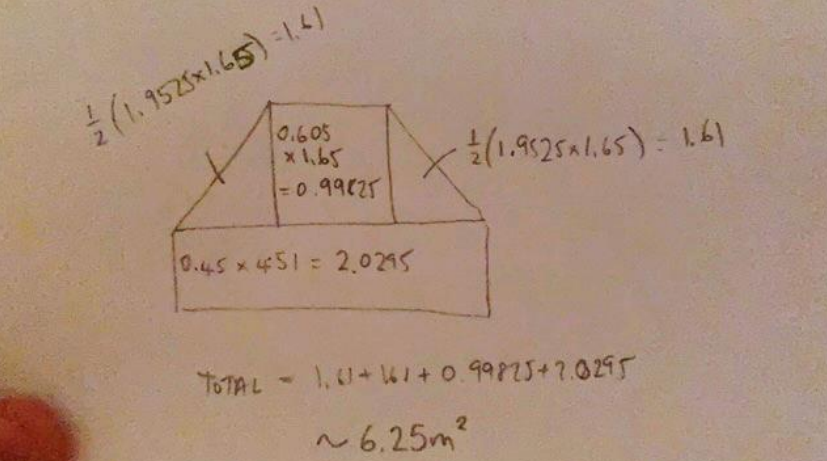 ½(1.9525×1.65) = 1.61
0.605
× 1.65
= 0.99825
½(1.9525×1.65) = 1.61
0.45 × 4.51 = 2.0295
TOTAL = 1.61 + 1.61 + 0.99825 + 2.0295
~ 6.25m²